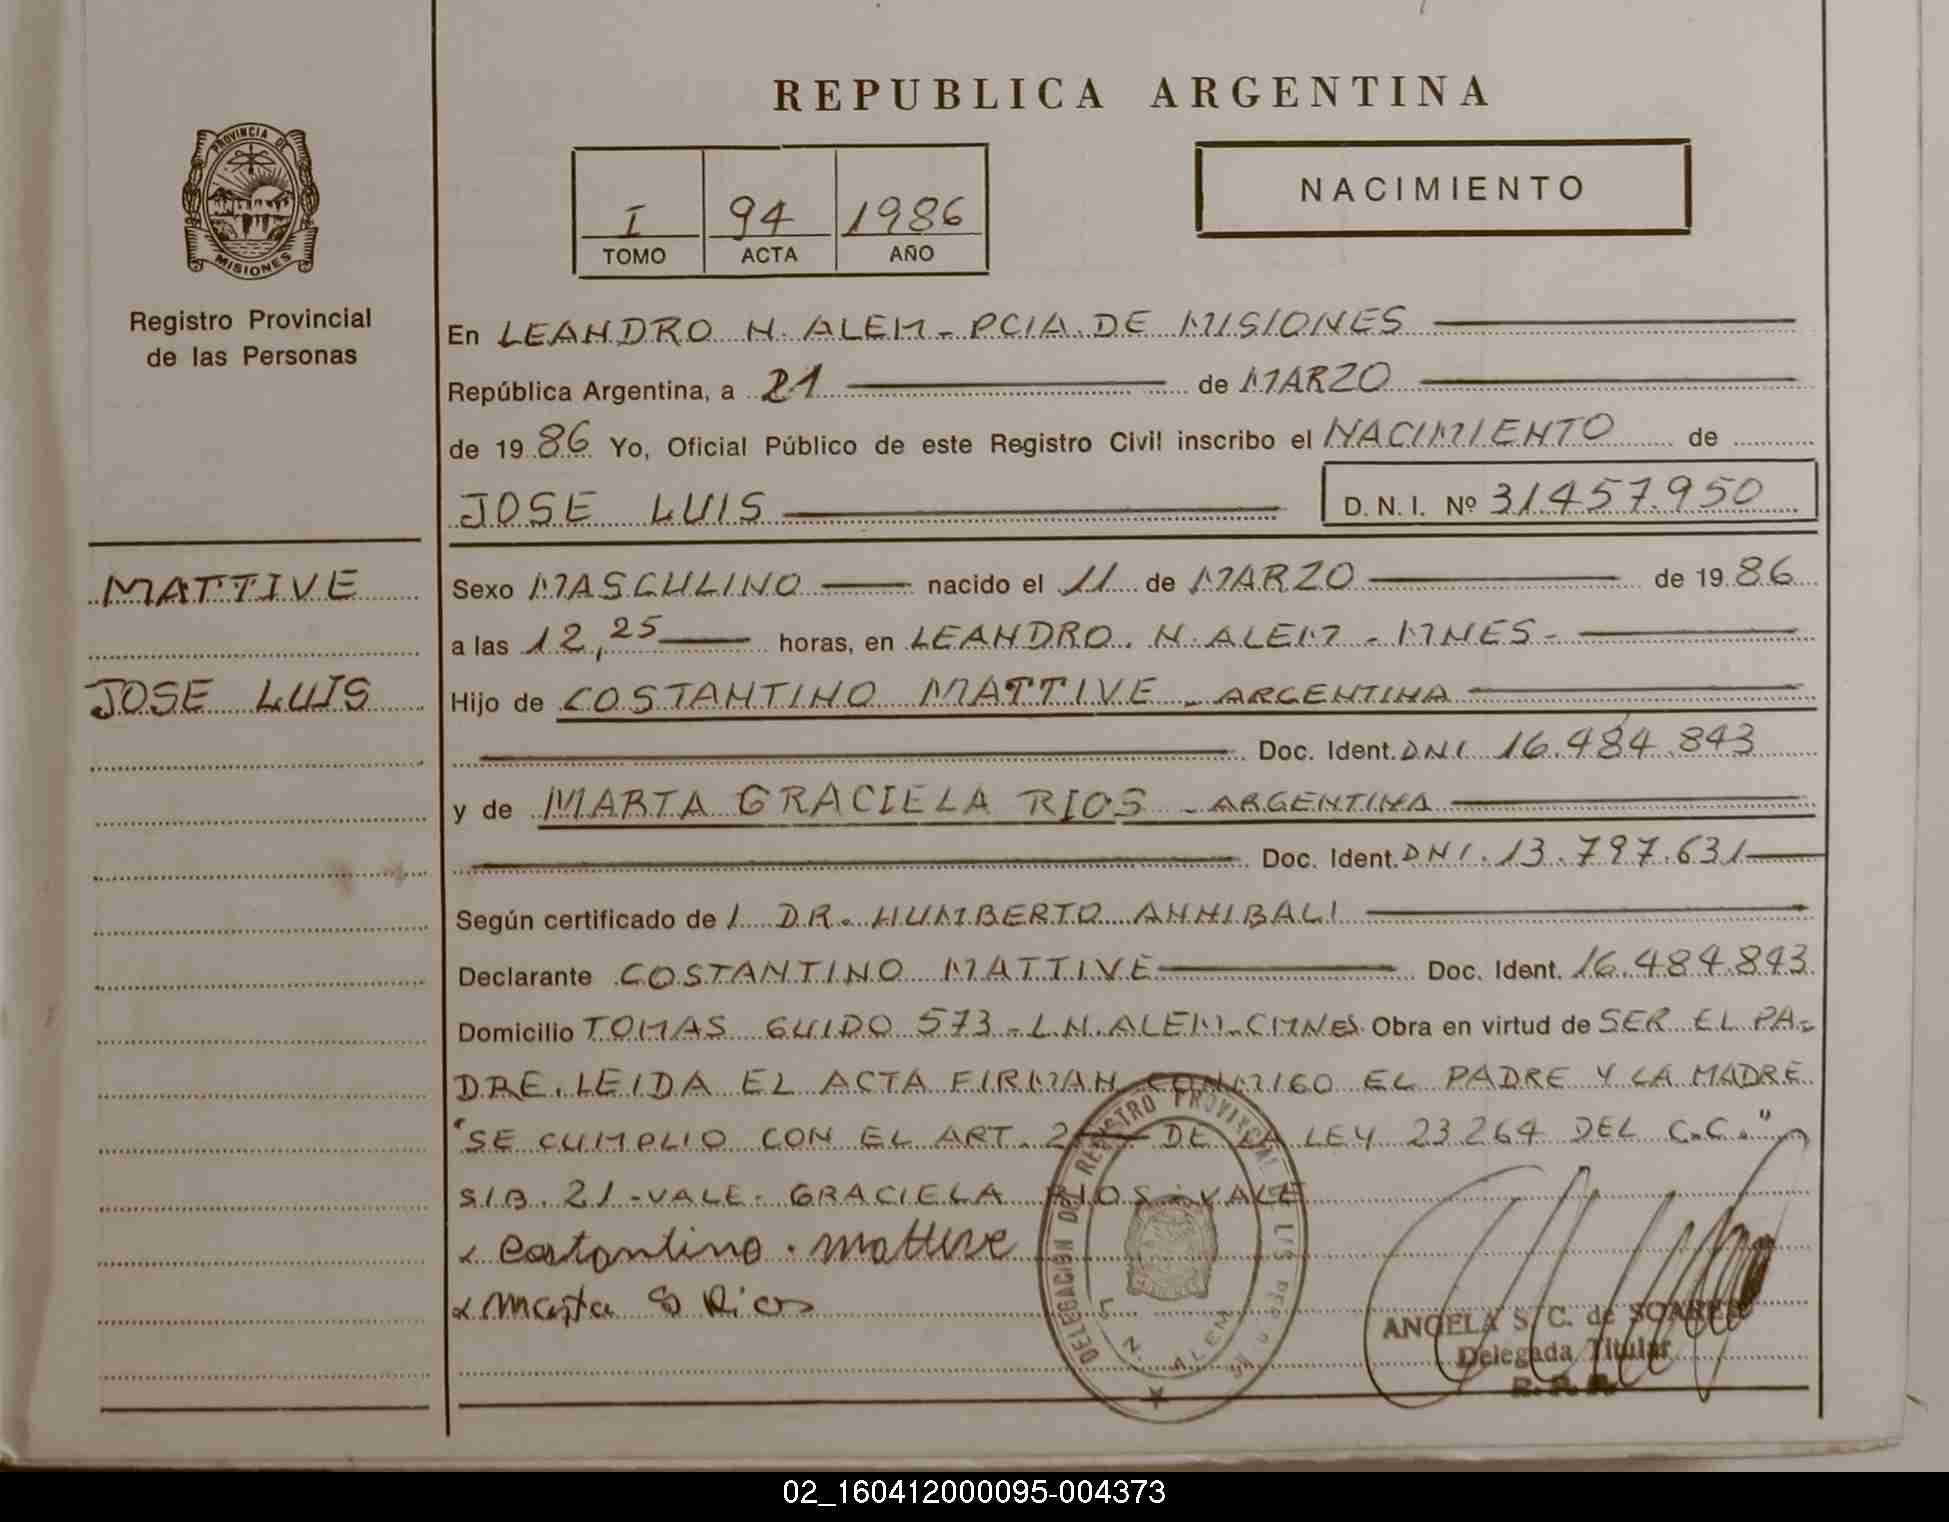 REPUBLICA ARGENTINA
PROVINCIA DE
MISIONES
Registro Provincial
de las Personas
I 94 1986
TOMO ACTA AÑO
NACIMIENTO
En LEANDRO N. ALEM - PCIA. DE MISIONES
República Argentina, a 21 de MARZO
de 1986 Yo, Oficial Público de este Registro Civil inscribo el NACIMIENTO de
JOSE LUIS D. N. I. Nº 31457.950
MATTIVE
JOSE LUIS
Sexo MASCULINO nacido el 11 de MARZO de 1986
a las 12,25 horas, en LEANDRO. N. ALEM - MNES -
Hijo de COSTANTINO MATTIVE - ARGENTINA
Doc. Ident. DNI 16.484.843
y de MARTA GRACIELA RIOS - ARGENTINA
Doc. Ident. DNI. 13.797.631
Según certificado de DR. HUMBERTO ANNIBALI
Declarante COSTANTINO MATTIVE Doc. Ident. 16.484.843
Domicilio TOMAS GUIDO 573 - L.N. ALEM - Obra en virtud de SER EL PA-
DRE. LEIDA EL ACTA FIRMAN CONMIGO EL PADRE Y LA MADRE
"SE CUMPLIO CON EL ART. DE LA LEY 23264 DEL C.C."
S/B. 21 - VALE - GRACIELA RIOS - VALE
Costantino. Mattive
Marta G Rios
DELEGACION DEL REGISTRO PROVINCIAL
L. N. ALEM
ANGELA S. C. de SOARES
Delegada Titular
R. P. P.
02_160412000095-004373